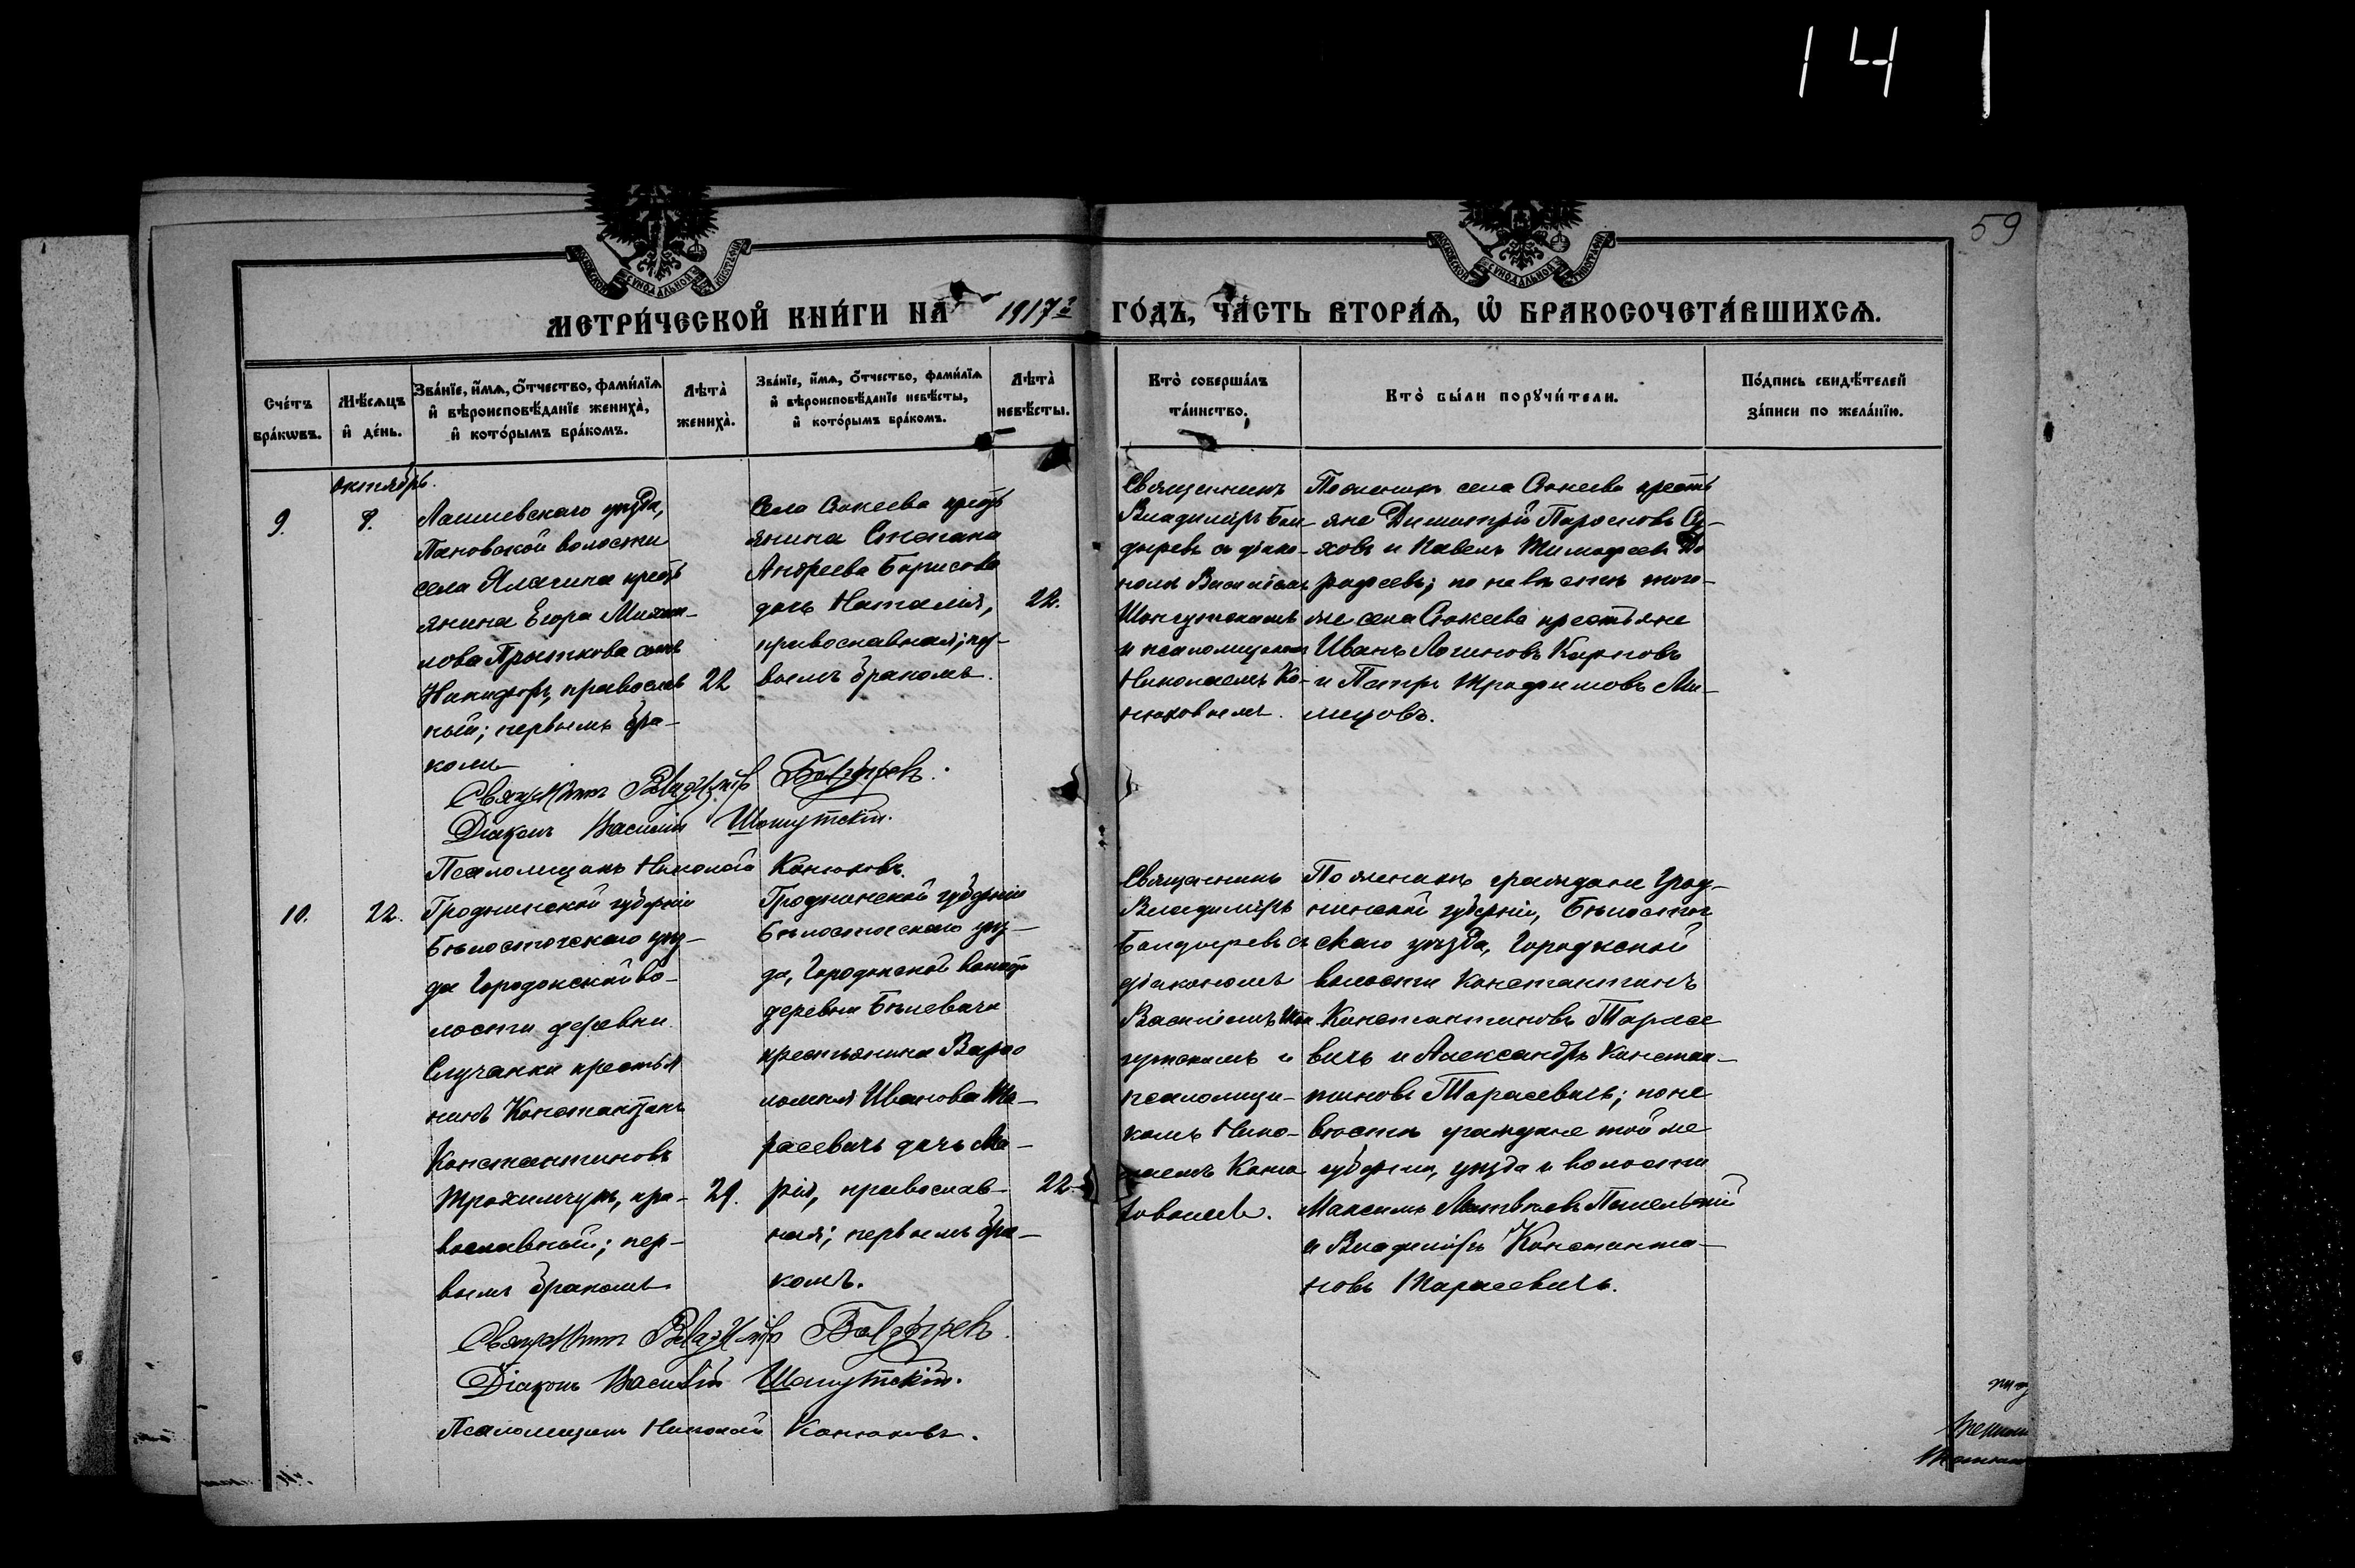 14 1
59
МОСКОВСКОЙ СѴНОДАЛЬНОЙ ТИПОГРАФІИ
МОСКОВСКОЙ СѴНОДАЛЬНОЙ ТИПОГРАФІИ
МЕТРИ́ЧЕСКОЙ КНИ́ГИ НА 1917 ГО́ДЪ, ЧА́СТЬ ВТОРА́Ѧ, Ѡ҆ БРАКОСОЧЕТА́ВШИХСѦ.
Сче́тъ
бра́кѡвъ.
Мѣ́сѧцъ
и҆ де́нь.
Зва́нїе, и҆́мѧ, ѻ҆́тчество, фами́лїѧ
и҆ вѣроисповѣ́данїе жениха̀,
и҆ кото́рымъ бра́комъ.
Лѣта̀
жениха̀.
Зва́нїе, и҆́мѧ, ѻ҆́тчество, фами́лїѧ
и҆ вѣроисповѣ́данїе невѣ́сты,
и҆ кото́рымъ бра́комъ.
Лѣта̀
невѣ́сты.
Кто̀ соверша́лъ
та́инство.
Кто̀ бы́ли порꙋчи́тели.
По́дпись свидѣ́телей
за́писи по жела́нїю.
октябрь.
9.
8.
Лаишевскаго уѣзда,
Пановской волости
села прест
янина Егора Михаи-
лова Прыткова сынъ
Никифоръ, православ
ный; первымъ бра-
комъ
22
Села Сокеева крест
янина Степана
Андреева Борисова
дочь Наталія,
православная; пер-
вымъ бракомъ.
22.
Священникъ
Владиміръ Бол-
дыревъ съ діако-
номъ Василіемъ
и псаломщикомъ
Николаемъ Ко-
нюховымъ.
По женихѣ села Сокеева крестъ
яне Димитрій
ховъ и Павелъ Тимофеевъ До
рофеевъ; по невѣстѣ того-
же села Сокеева крестьяне
Иванъ Логиновъ Карповъ
и Петръ Трофимовъ
Священникъ Владиміръ Болдыревъ.
Діаконъ Василій
Псаломщикъ Николай Конюховъ.
10.
22.
Гродненской губерніи
Бѣлостокскаго уѣз-
да Городокской во-
лости деревни
Случанки крестья
нинъ Константинъ
Константиновъ
Трохимчукъ, пра-
вославный; пер-
вымъ бракомъ
29.
Гродненской губерніи
Бѣлостокскаго уѣз-
да, Городокской волости
деревни Бѣлевичи
крестьянина Варфо
ломея Иванова Та-
расевичъ дочь Ма-
рія, православ-
ная; первымъ бра-
комъ.
22
Священникъ
Владиміръ
Болдыревъ съ
діакономъ
Василіемъ
и
псаломщи-
комъ Нико-
лаемъ Коню
ховымъ.
По женихѣ граждане Грод-
ненской губерніи, Бѣлосток
скаго уѣзда, Городкской
волости Константинъ
Константиновъ Тарасе
вичъ и Александръ Констан-
тиновъ Тарасевичъ; по не
вѣстѣ граждане той же
губерніи, уѣзда и волости
Максимъ
и Владиміръ Константи-
новъ Тарасевичъ.
Священникъ Владиміръ Болдыревъ.
Діаконъ Василій
Псаломщикъ Николай Конюховъ.